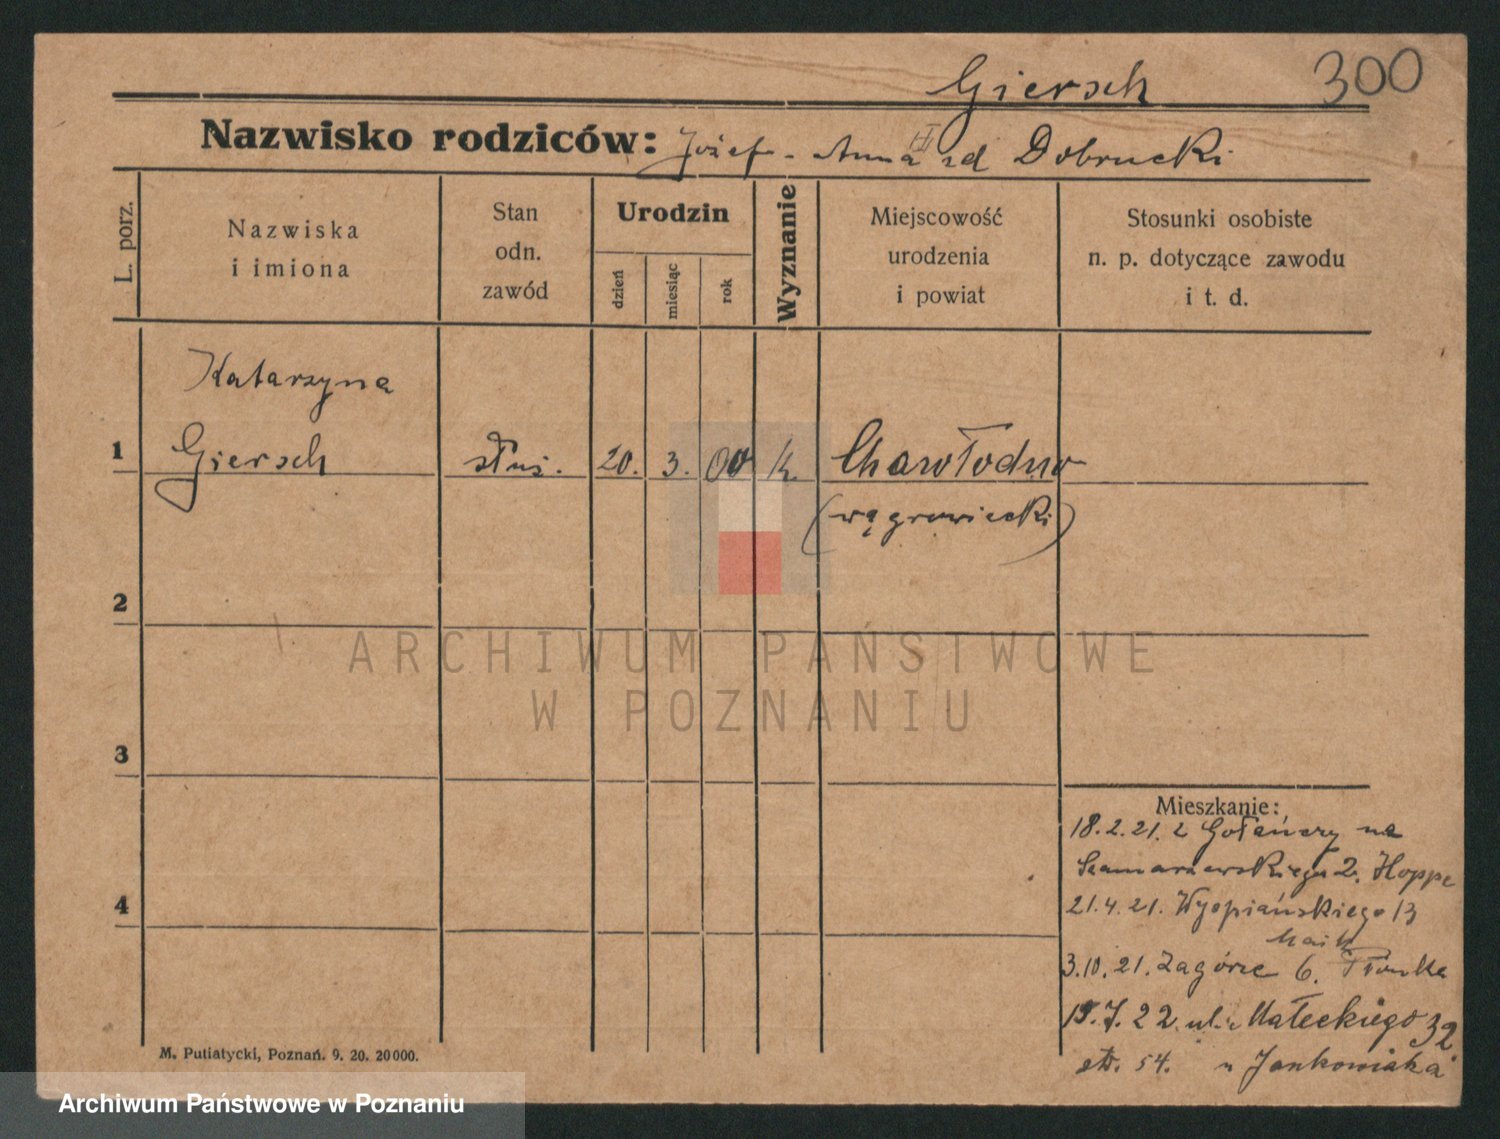 Giersch
300
Nazwisko rodziców: Józef - Anna zd Dobrucki
L. porz.
Nazwiska
i imiona
Stan
odn.
zawód
Urodzin
dzień
miesiąc
rok
Wyznanie
Miejscowość
urodzenia
i powiat
Stosunki osobiste
n. p. dotyczące zawodu
i t. d.
Katarzyna
1 Giersch służ. 20. 3. 00 k.
(wągrowiecki)
2
ARCHIWUM PAŃSTWOWE
W POZNANIU
3
Mieszkanie:
18.2.21. z Gołańczy na
Szamarzewskiego 2. Hoppe
4
21.4.21. Wyspiańskiego 13
3.10.21. Zagórze 6.
ul. Małeckiego 32
54. u Jankowiaka
M. Putiatycki, Poznań. 9. 20. 20000.
Archiwum Państwowe w Poznaniu